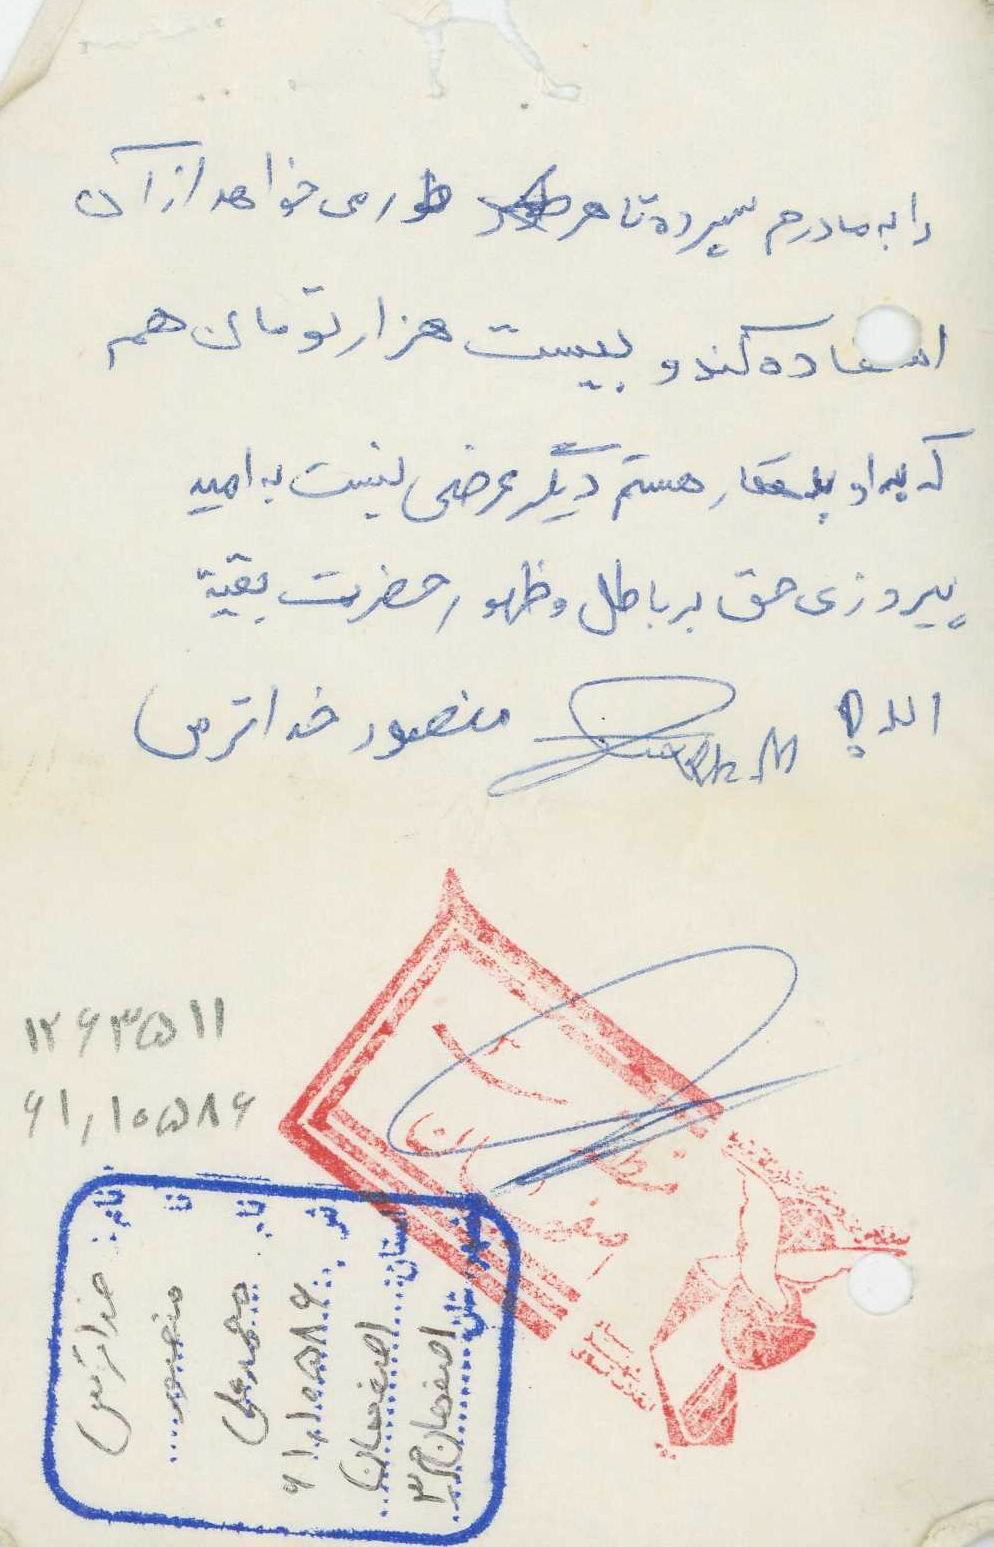 را به مادرم سپرده تا هر طور می خواهد از آن
استفاده کند و بیست هزار تومان هم
که به او بدهکار هستم دیگر عرضی نیست به امید
پیروزی حق بر باطل و ظهور حضرت بقیة
الله منصور خداترس
۱۲۶۳۵۱۱
۶۱/۱۰۵۸۶
نام: خداترس
منصور
نام محمدعلی
ش ۶۱/۱۰۵۸۶
استان اصفهان
اصفهان ۳
منطقه